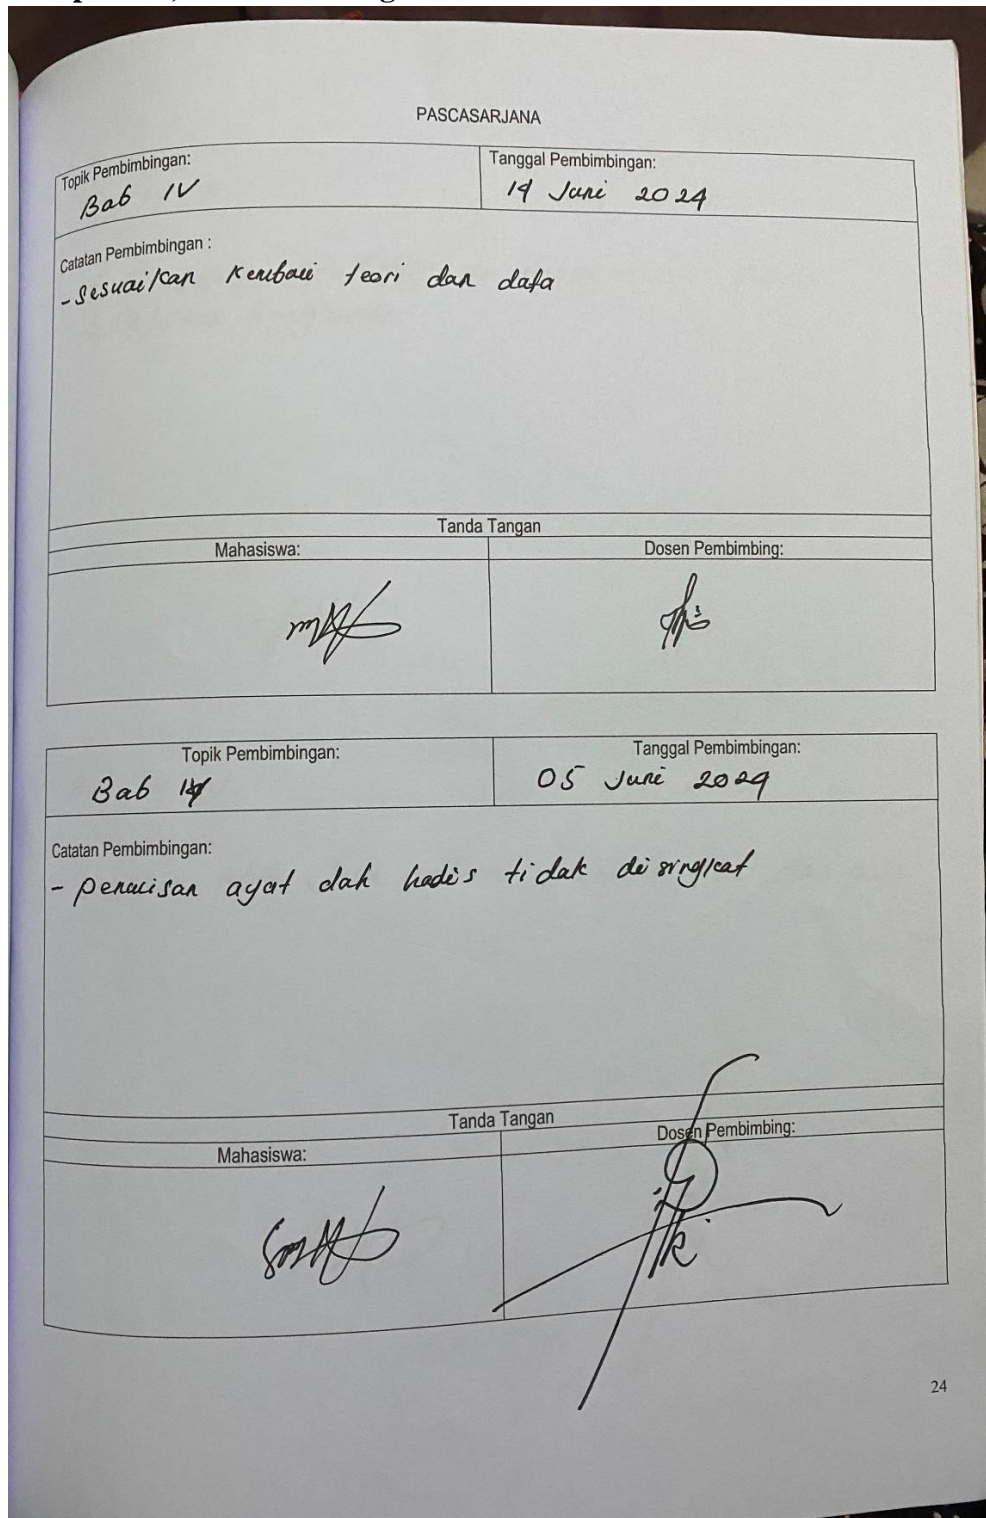 PASCASARJANA
Topik Pembimbingan:
Tanggal Pembimbingan:
Bab IV
14 Juni 2024
Catatan Pembimbingan :
- Sesuaikan kembali teori dan data
Tanda Tangan
Mahasiswa:
Dosen Pembimbing:
Topik Pembimbingan:
Tanggal Pembimbingan:
Bab
05 Juni 2024
Catatan Pembimbingan:
- Penulisan ayat dan hadis tidak di singkat
Tanda Tangan
Mahasiswa:
Dosen Pembimbing:
24